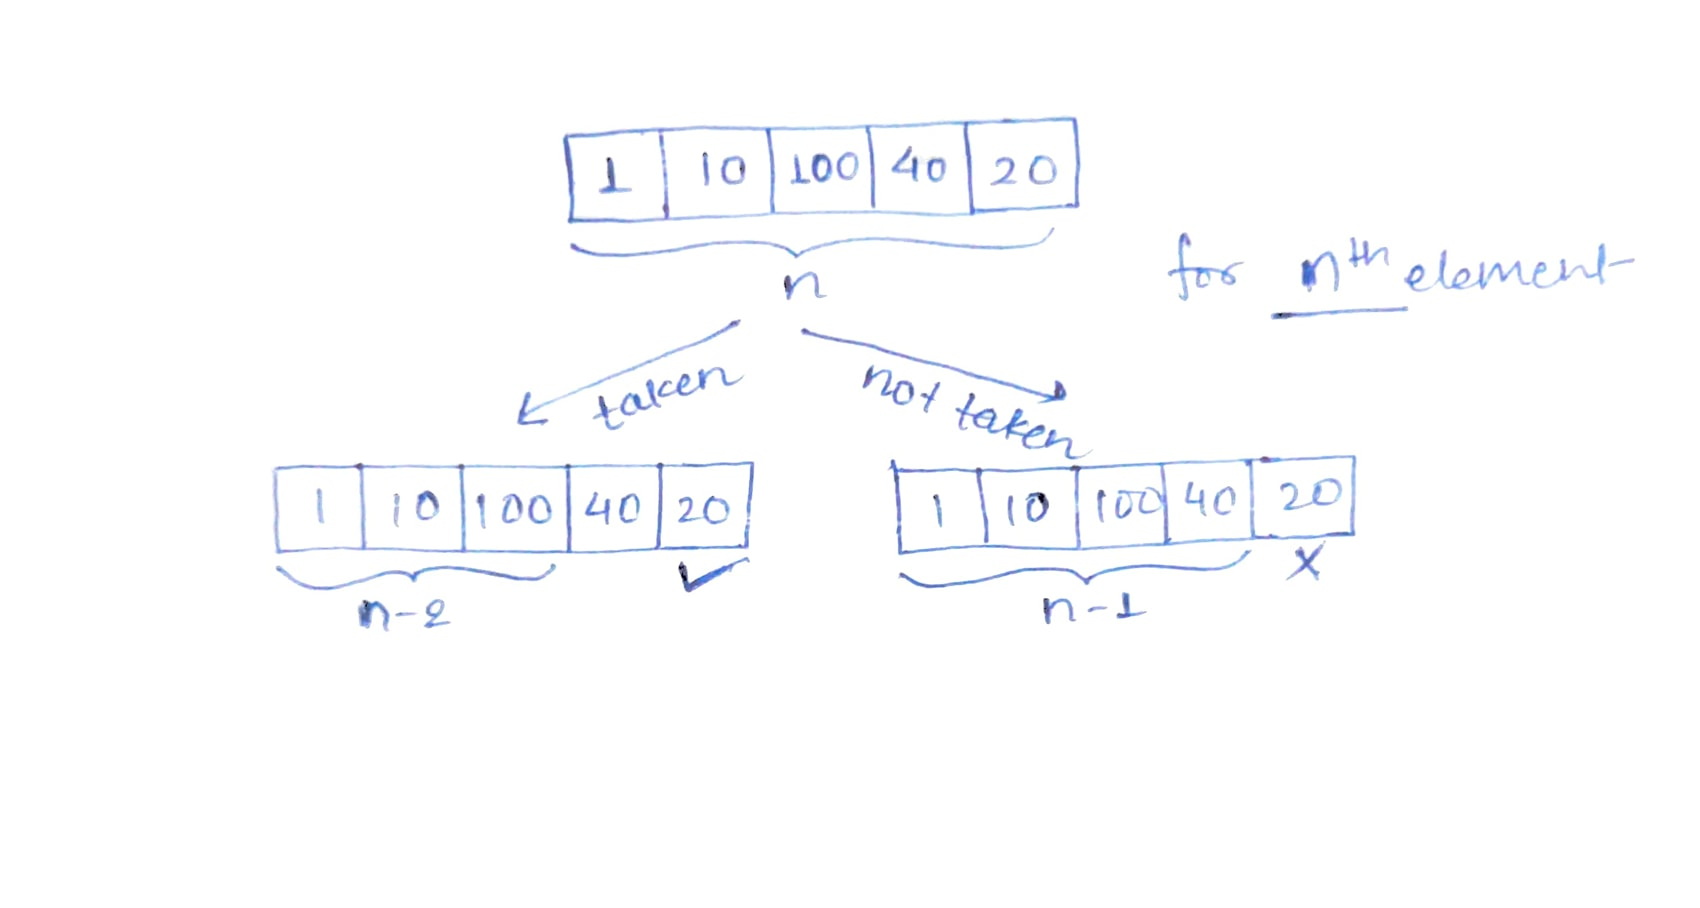 1 10 100 40 20
n
for nth element
taken
not taken
1 10 100 40 20
n-2
1 10 100 40 20
n-1